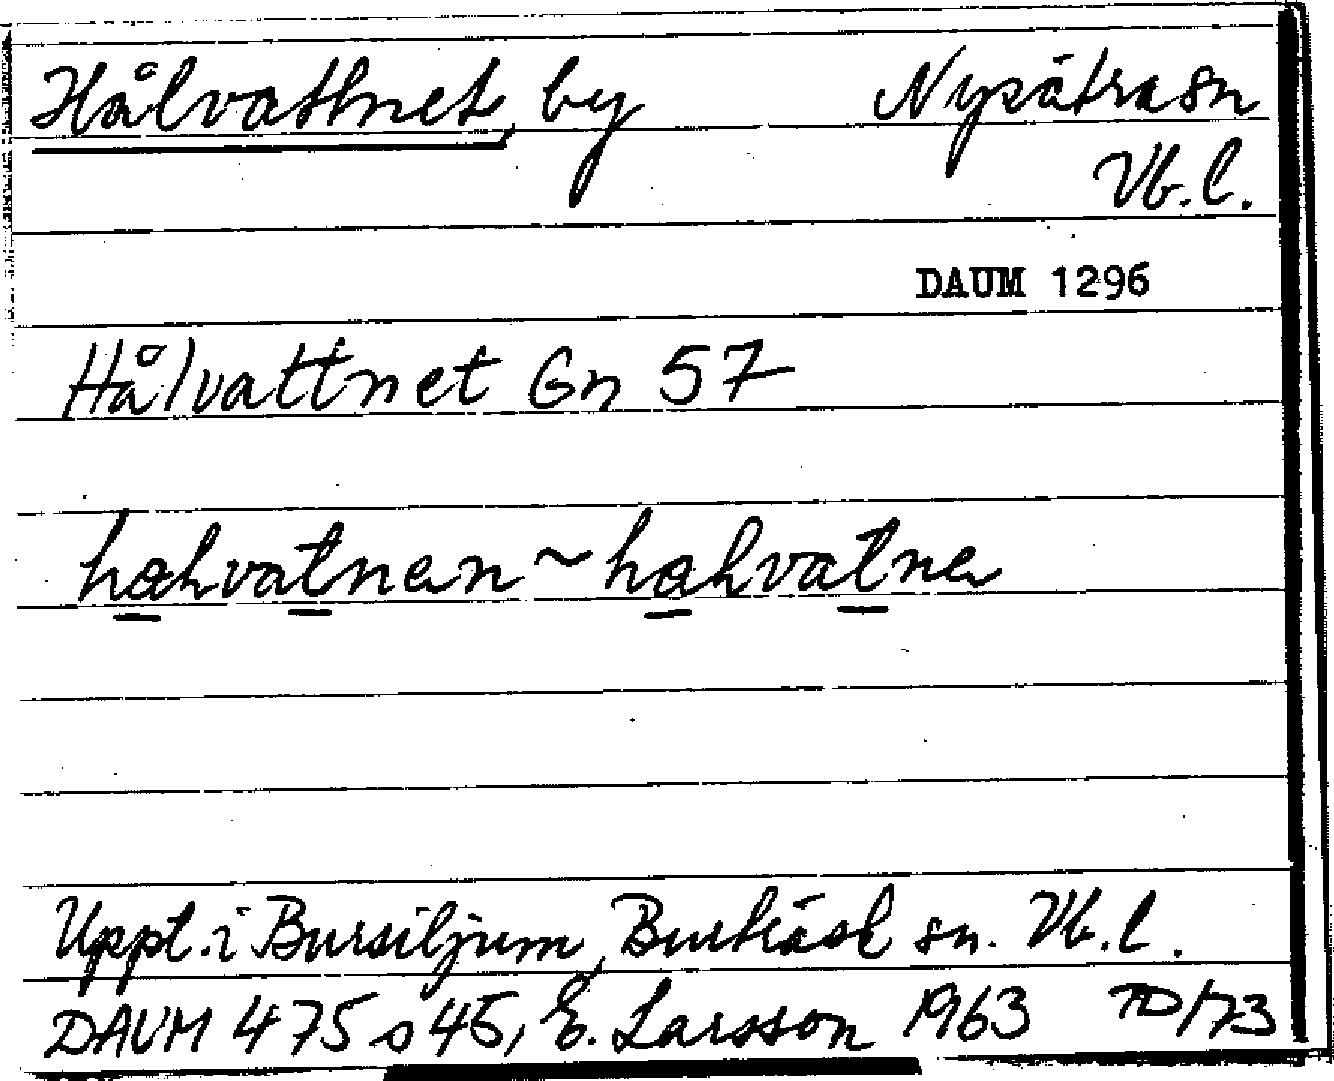 Hålvattnet, by Nysätra sn
Vb.l.
DAUM 1296
Hålvattnet Gn 57
hahvatnen ~ hahvatne
Uppt. i Bursiljum, Burträsk sn. Vb.l.
DAUM 475 s 45, E. Larsson 1963 TD/73